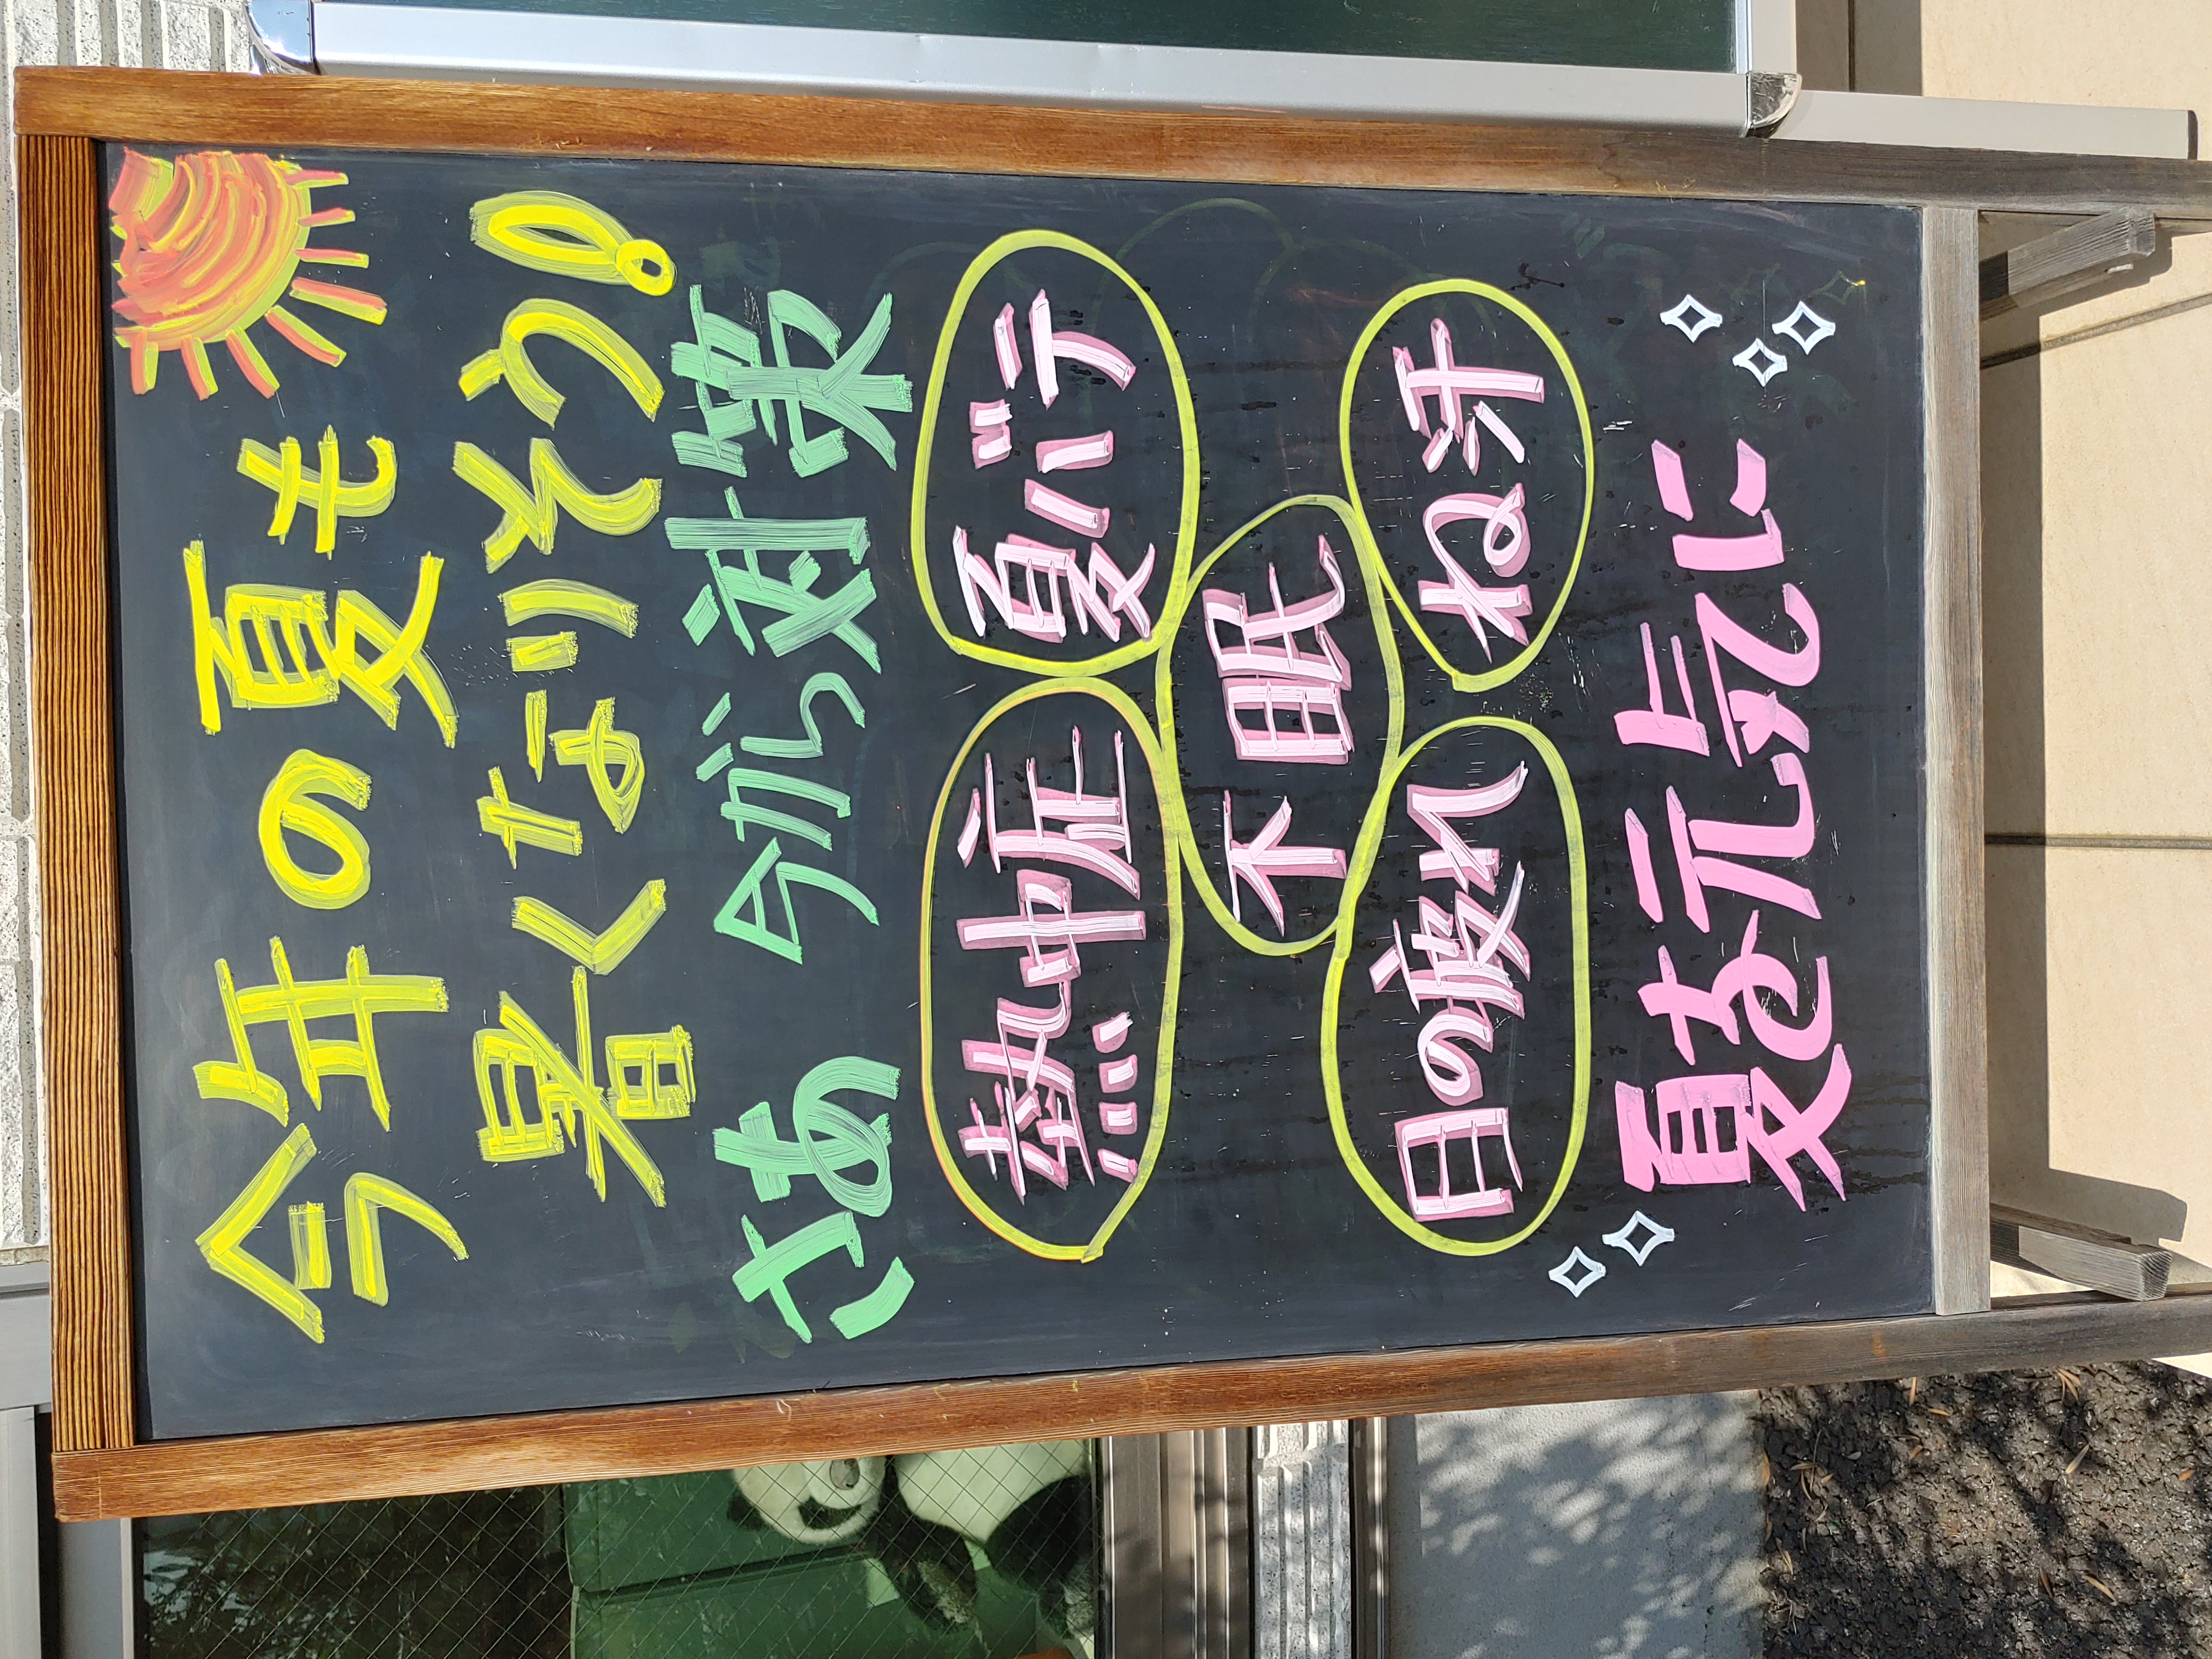 今年の夏も
暑くなりそう!
さあ 今から対策
熱中症
夏バテ
不眠
目の疲れ
ね汗
夏を元気に